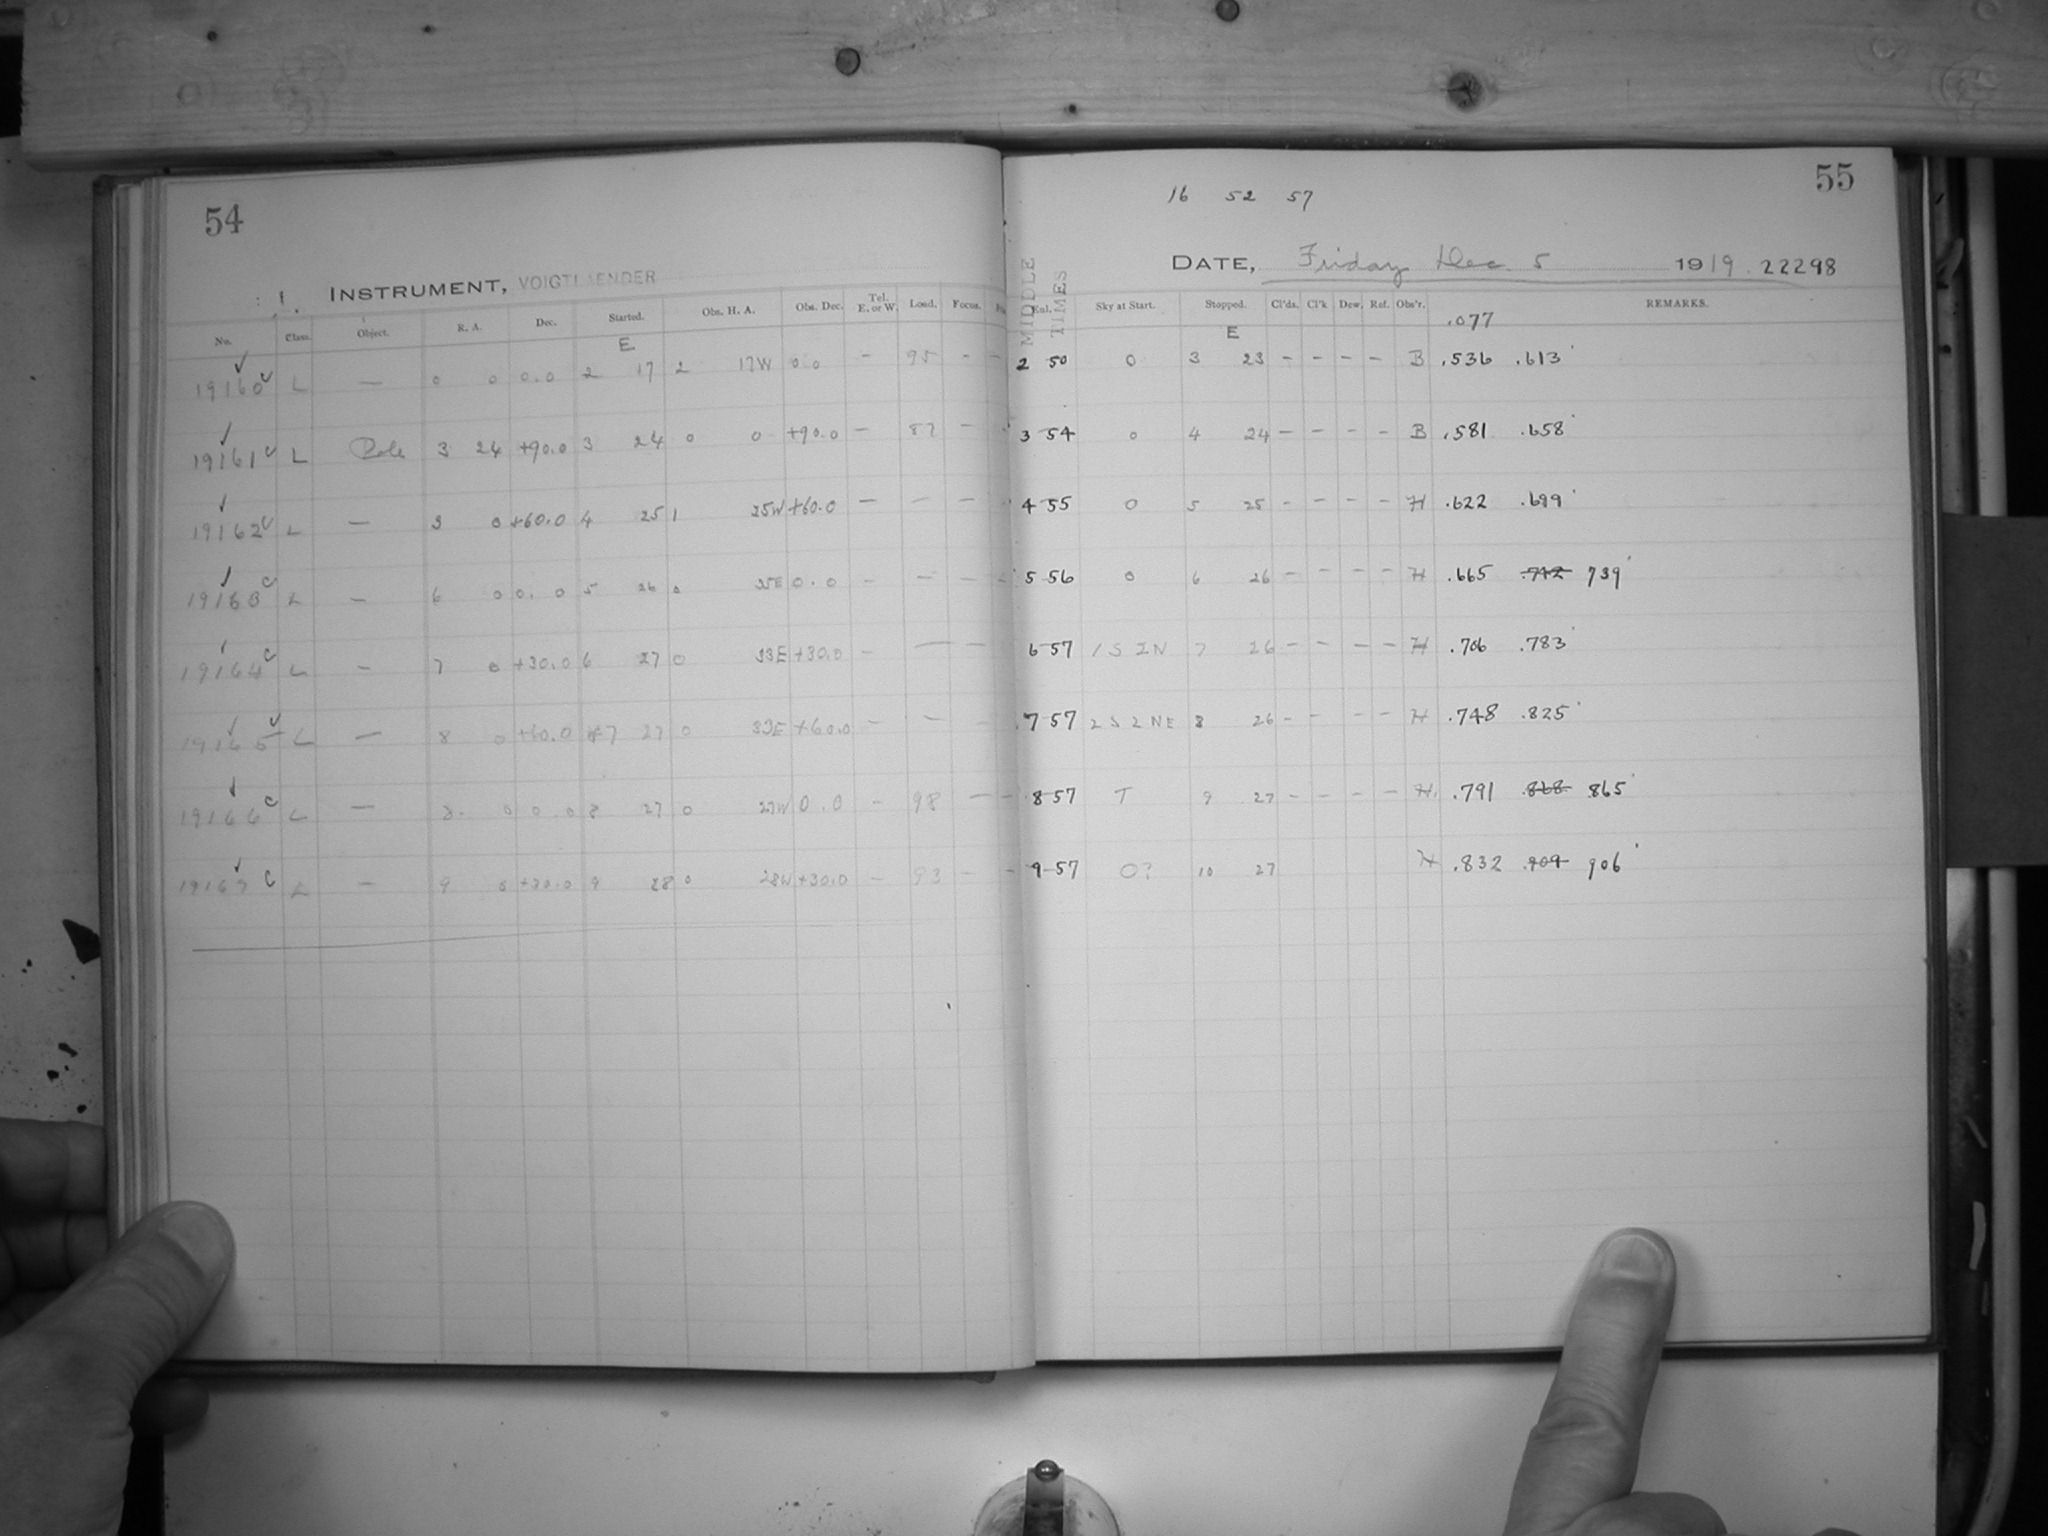 54
INSTRUMENT, VOIGTLAENDER
No. Class. Object. R. A. Dec. Started. Obs. H. A. Obs. Dec. Tel. E. or W. Load. Focus.
E
19160 L — 0 0 0.0 2 17 2 17W 0.0 — 95 — —
19161 L Pole 3 24 +90.0 3 24 0 0 +90.0 — 87 — -
19162 L — 3 0 +60.0 4 25 1 25W +60.0 — — —
19163 L — 6 0 0.0 5 26 0 35E 0.0 — — — -
19164 L — 7 0 +30.0 6 27 0 33E +30.0 — — —
19165 L — 8 0 +60.0 7 27 0 33E +60.0 — — —
19166 L — 8 0 0.0 8 27 0 27W 0.0 — 98 — —
19167 L — 9 0 +30.0 9 28 0 28W +30.0 — 93 — -
55
16 52 57
DATE, Friday Dec. 5 1919. 22298
MIDDLE TIMES
Sky at Start. Stopped. Cl'ds. Cl'k Dew. Ref. Obs'r. REMARKS.
E .077
2 50 0 3 23 — — — — B .536 .613
3 54 0 4 24 — — — — B .581 .658
4 55 0 5 25 — — — — H .622 .699
5 56 0 6 26 — — — — H .665 .742 739
6 57 1S IN 7 26 — — — — H .706 .783
7 57 2S 2NE 8 26 — — — — H .748 .825
8 57 T 9 27 — — — — H. .791 .868 865
9 57 0? 10 27 H .832 .909 906